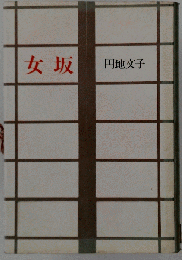 女坂
円地文子